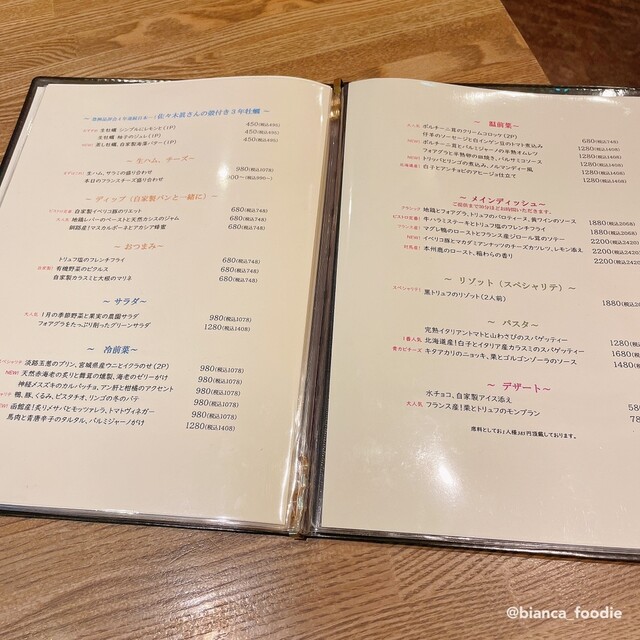 佐々木眞さんの殻付き3年牡蠣～
生牡蠣 シンプルにレモンと(1P) 450(税込495)
生牡蠣 柚子のジュレ(1P) 450(税込495)
NEW! 蒸し牡蠣、自家製海藻バター(1P) 450(税込495)
～生ハム、チーズ～
生ハム、サラミの盛り合わせ 980(税込1078)
本日のフランスチーズ盛り合わせ
～ディップ(自家製パンと一緒に)～
自家製イベリコ豚のリエット 680(税込748)
大人気 地鶏レバーのペーストと天然カシスのジャム 680(税込748)
釧路産!マスカルポーネとアカシア蜂蜜 680(税込748)
～おつまみ～
トリュフ塩のフレンチフライ 680(税込748)
自家製! 有機野菜のピクルス 680(税込748)
自家製カラスミと大根のマリネ 680(税込748)
～サラダ～
大人気 1月の季節野菜と果実の農園サラダ 980(税込1078)
フォアグラをたっぷり削ったグリーンサラダ 1280(税込1408)
～ 冷前菜～
淡路玉葱のプリン、宮城県産ウニとイクラのせ(2P) 980(税込1078)
NEW! 天然赤海老の炙りと舞茸の燻製、海老のゼリーがけ 980(税込1078)
神経メヌズキのカルパッチョ、アン肝と柑橘のアクセント 980(税込1078)
鴨、豚、くるみ、ピスタチオ、リンゴの冬のパテ 980(税込1078)
NEW! 函館産!炙りメサバとモッツァレラ、トマトヴィネガー 980(税込1078)
馬肉と青唐辛子のタルタル、パルミジャーノがけ 1280(税込1408)
～ 温前菜～
大人気 ポルチーニ茸のクリームコロッケ(2P) 680(税込748)
仔羊のソーセージと白インゲン豆のトマト煮込み 1280(税込1408)
NEW! ポルチーニ茸とパルミジャーノの半熟オムレツ 1280(税込1408)
フォアグラと半熟卵の鉄焼き、バルサミコソース 1280(税込140
NEW! トリッパとリンゴの煮込み、ノルマンディー風 1280(税込14
北海道産! 白子とアンチョビのアヒージョ仕立て 1280(税込
～ メインディッシュ～
ご提供まで30分ほどお時間いただきます。
クラシック 地鶏とフォアグラ、トリュフのバロティーヌ、貴ワインのソース 1880(税込2068)
ビストロ定番 牛ハラミステーキとトリュフ塩のフレンチフライ 1880(税込2068)
フランス産! マグレ鴨のローストとフランス産ジロール茸のソテー 2200(税込2420)
NEW! イベリコ豚とマカダミアンナッツのチーズカツレツ、レモン添え 2200(税込2420
対馬産! 本州鹿のロースト、稲わらの香り 2200(税込2420
～ リゾット (スペシャリテ) ～
スペシャリテ! 栗トリュフのリゾット(2人前) 1880(税込20
～ パスタ～
完熟イタリアントマトと山わさびのスパゲッティー 1280(税
1番人気 北海道産!白子とイタリア産カラスミのスパゲッティー 1680(
キタアカリのニョッキ、栗とゴルゴンゾーラのソース 1480(
～ デザート～
水チョコ、自家製アイス添え 58
大人気 フランス産!栗とトリュフのモンブラン 78
席料としてお1人様385円頂戴しております。
@bianca_foodie